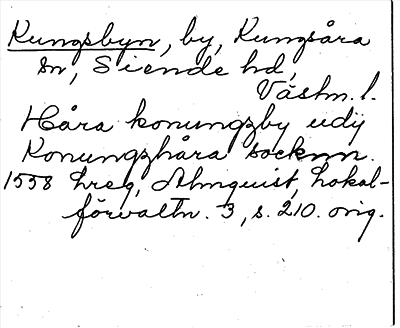 Kungsbyn, by, Kungsåra
sn, Siende hd,
Västm. l.
Håra konungzby udij
Konungzhåra socknn.
1558 hreg, Almquist, Lokal-
förvaltn. 3, s. 210. orig.